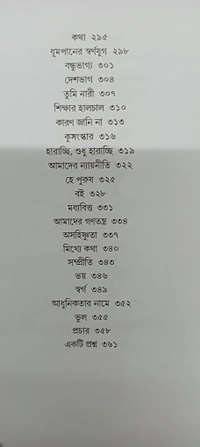 কথা ২৯৫
ধূমপানের স্বর্ণযুগ ২৯৮
বন্ধুভাগ্য ৩০১
দেশভাগ ৩০৪
তুমি নারী ৩০৭
শিক্ষার হালচাল ৩১০
কারণ জানি না ৩১৩
কুসংস্কার ৩১৬
হারাচ্ছি, শুধু হারাচ্ছি ৩১৯
আমাদের ন্যায়নীতি ৩২২
হে পুরুষ ৩২৫
বই ৩২৮
মধ্যবিত্ত ৩৩১
আমাদের গণতন্ত্র ৩৩৪
অসহিষ্ণুতা ৩৩৭
মিথ্যে কথা ৩৪০
সম্প্রীতি ৩৪৩
ভয় ৩৪৬
স্বর্গ ৩৪৯
আধুনিকতার নামে ৩৫২
ভুল ৩৫৫
প্রচার ৩৫৮
একটি প্রশ্ন ৩৬১